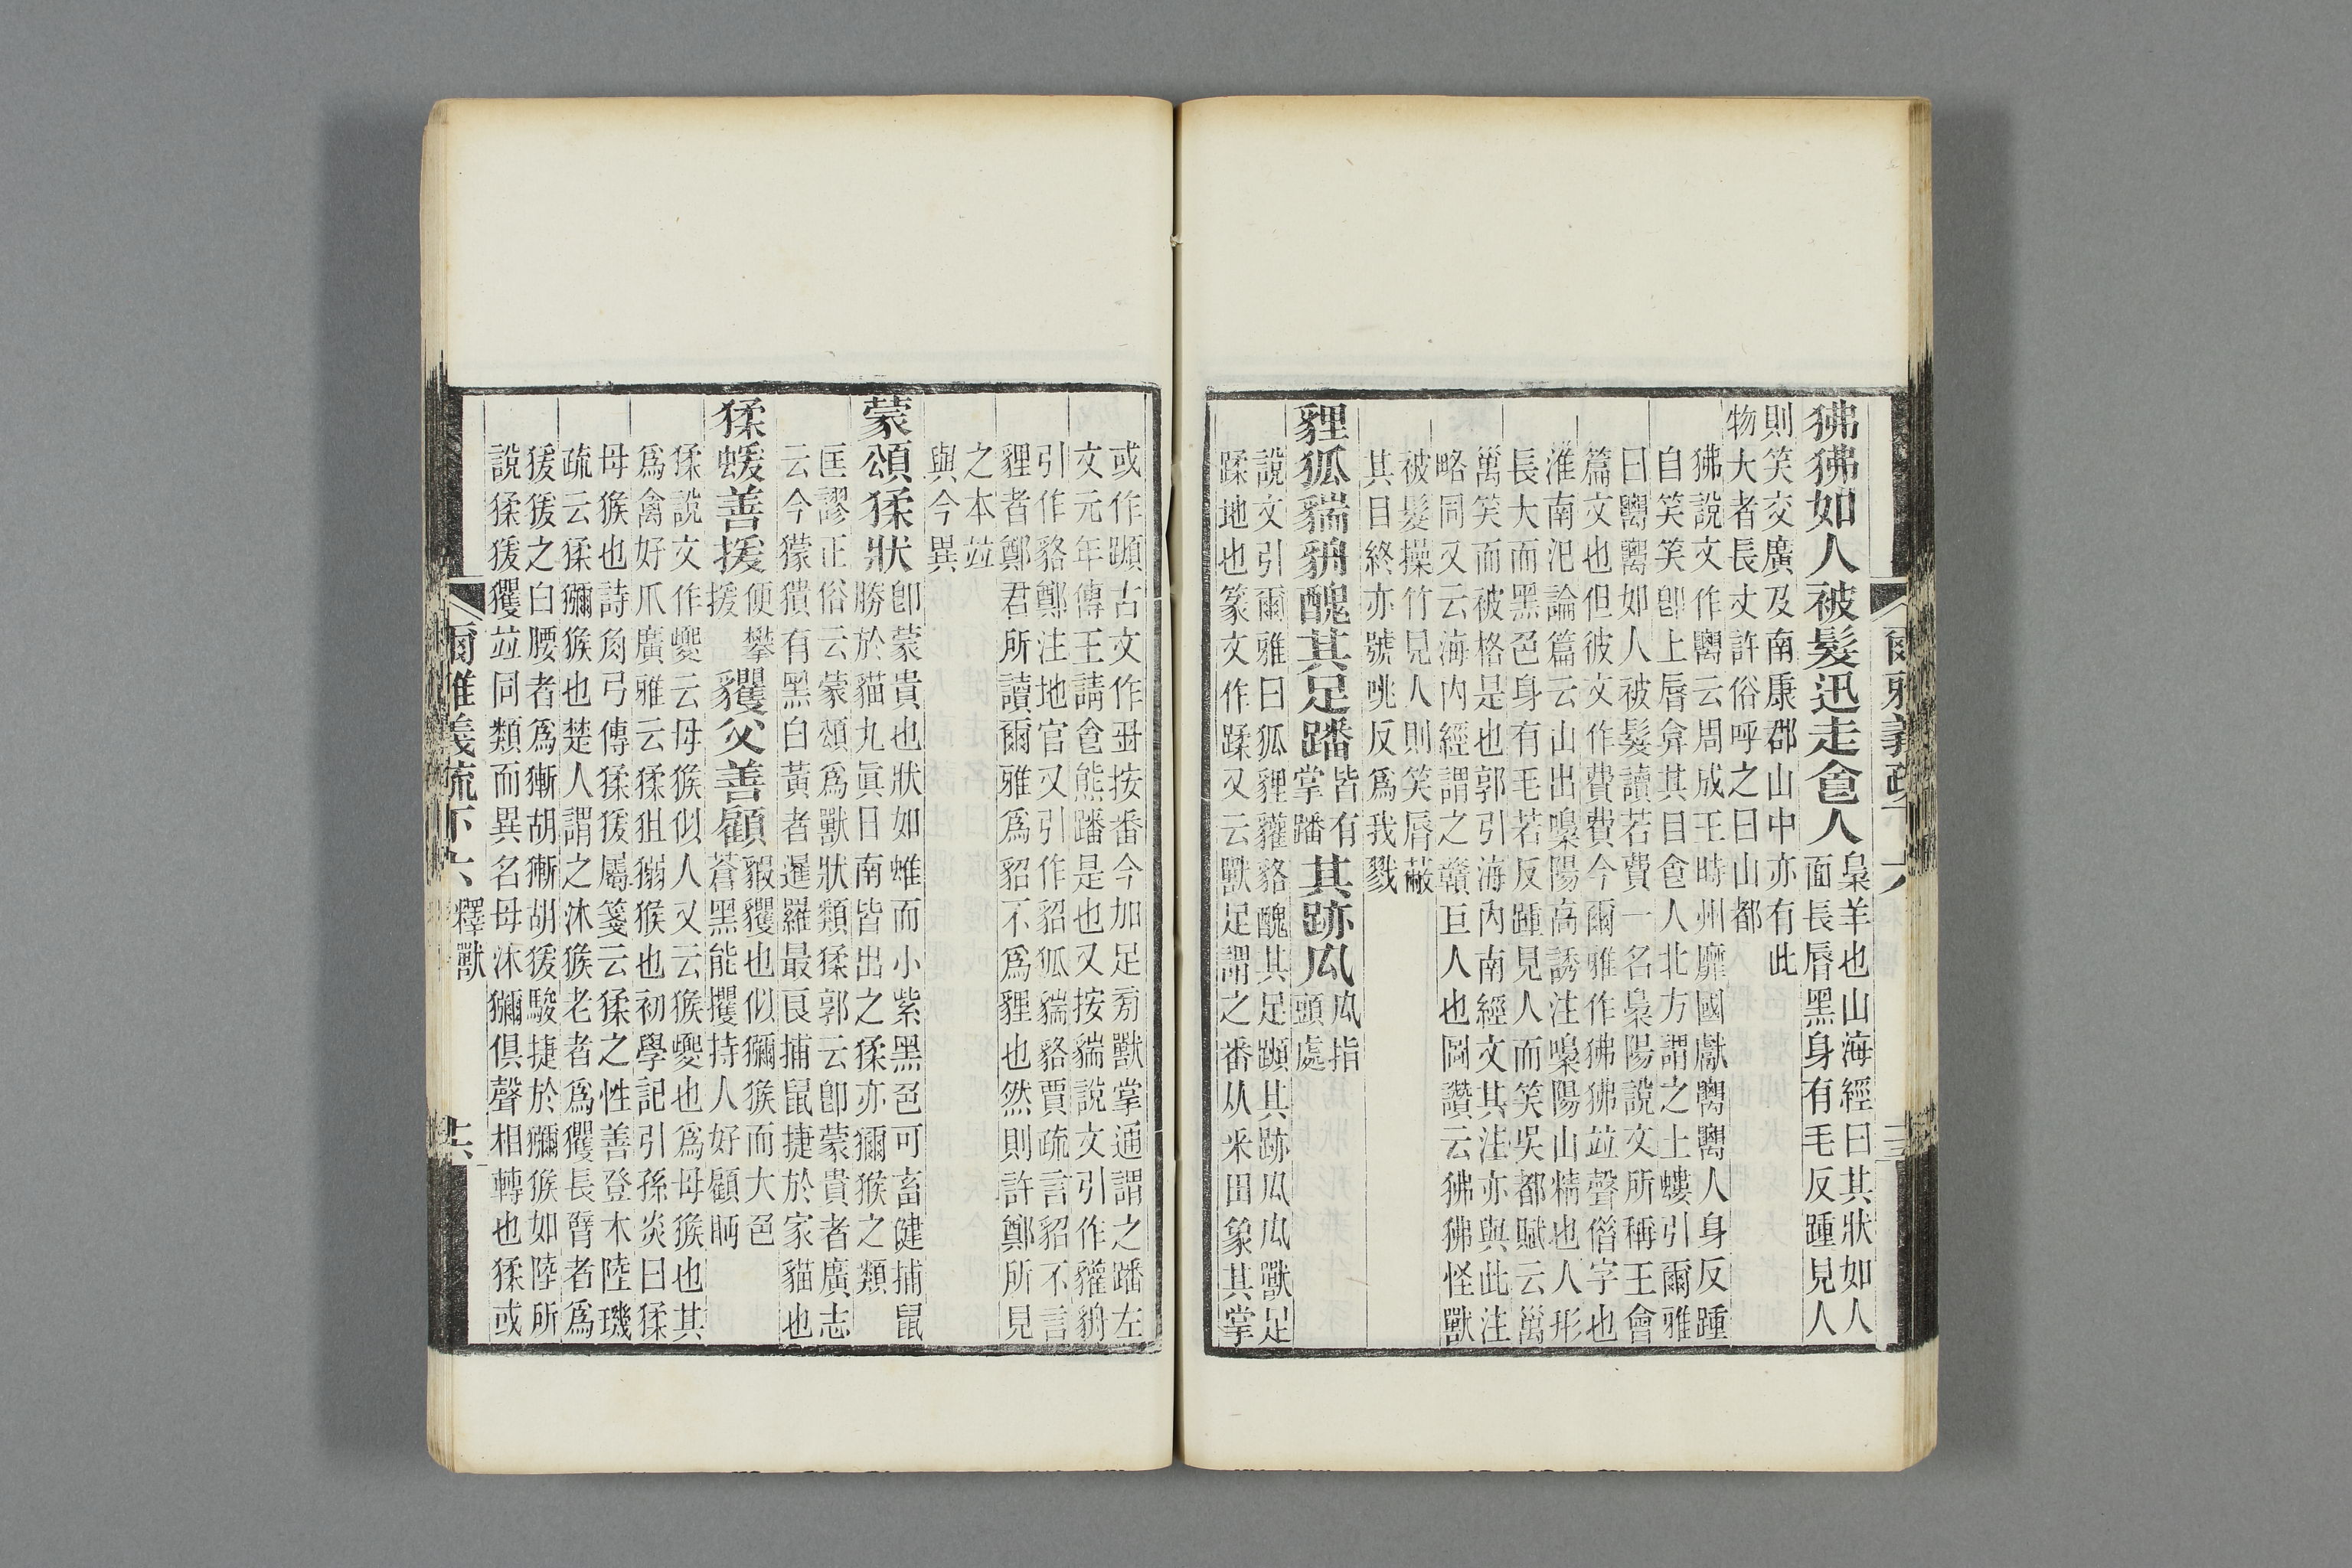 爾雅義疏下六
狒狒如人被髮迅走食人
梟羊也山海經曰其狀如人
面長脣黑身有毛反踵見人
則笑交廣及南康郡山中亦有此
物大者長丈許俗呼之曰山都
狒說文作𥝋云周成王時州靡國獻𥝋𥝋人身反踵
自笑笑卽上脣弇其目食人北方謂之土螻引爾雅
曰𥝋𥝋如人被髮讀若費一名梟陽說文所稱王會
篇文也但彼文作費費今爾雅作狒狒竝聲借字也
淮南氾論篇云山出嘄陽高誘注嘄陽山精也人形
長大而黑色身有毛若反踵見人而笑吳都賦云𥜿
𥜿笑而被格是也郭引海內南經文其注亦與此注
略同又云海內經謂之贛巨人也圖讚云狒狒怪獸
被髮操竹見人則笑脣蔽
其目終亦號咷反爲我戮
貍狐貒貈醜其足蹯
皆有
掌蹯
其跡厹
厹指
頭處
說文引爾雅曰狐貍貛貉醜其足䠗其跡厹厹獸足
蹂地也篆文作蹂又云獸足謂之番从釆田象其掌
或作䠗古文作𠂒按番今加足旁獸掌通謂之蹯左
文元年傳王請食熊蹯是也又按貒說文引作貛貈
引作貉鄭注地官又引作貂狐貒貉賈疏言貂不言
貍者鄭君所讀爾雅爲貂不爲貍也然則許鄭所見
之本竝
與今異
蒙頌猱狀
卽蒙貴也狀如蜼而小紫黑色可畜健捕鼠
勝於貓九眞日南皆出之猱亦獼猴之類
匡謬正俗云蒙頌爲獸狀類猱郭云卽蒙貴者廣志
云今獴㹍有黑白黃者暹羅最良捕鼠捷於家貓也
猱蝯善援
便攀
援
貜父善顧
貑貜也似獼猴而大色
蒼黑能攫持人好顧眄
猱說文作夒云母猴似人又云猴夒也爲母猴也其
爲禽好爪廣雅云猱狙獼猴也初學記引孫炎曰猱
母猴也詩角弓傳猱猨屬箋云猱之性善登木陸璣
疏云猱獼猴也楚人謂之沐猴老者爲玃長臂者爲
猨猨之白腰者爲獑胡獑胡猨駿捷於獼猴如陸所
說猱猨玃竝同類而異名母沐獼俱聲相轉也猱或
爾雅義疏下六 釋獸